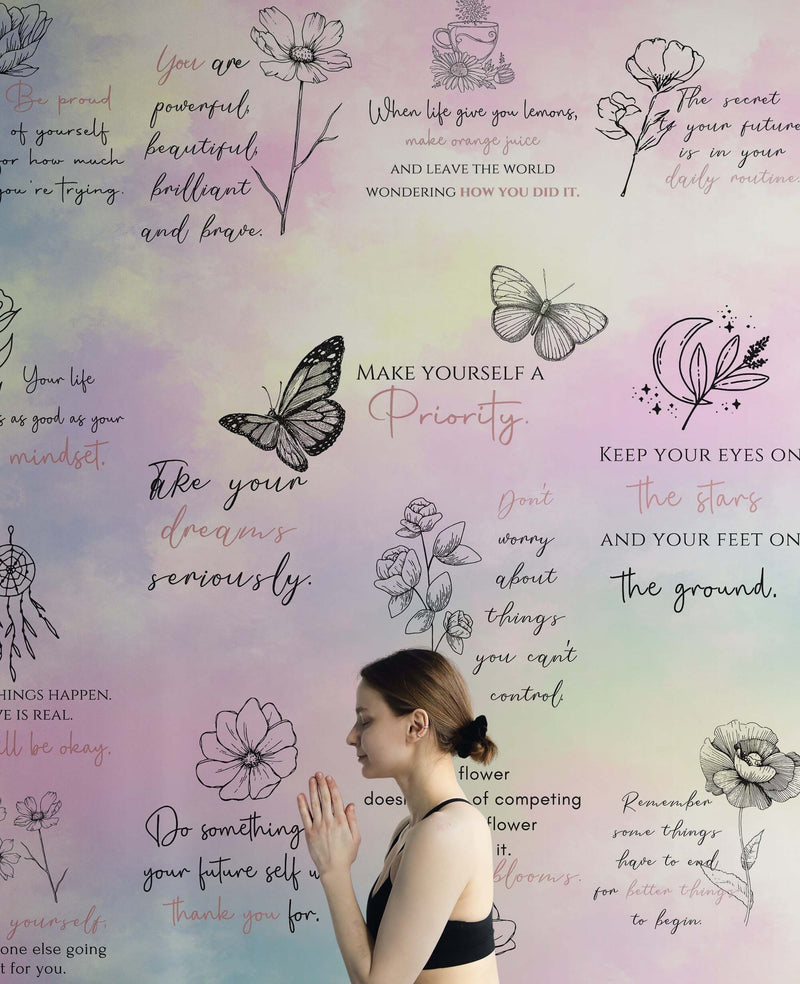 Be proud
of yourself
or how much
you're trying.
You are
powerful,
beautiful,
brilliant
and brave.
When life give you lemons,
make orange juice
AND LEAVE THE WORLD
WONDERING HOW YOU DID IT.
The secret
to your future
is in your
daily routine.
Your life
is as good as your
mindset.
Take your
dreams
seriously.
MAKE YOURSELF A
Priority.
KEEP YOUR EYES ON
the stars
AND YOUR FEET ON
the ground.
Don't
worry
about
things
you can't
control.
THINGS HAPPEN.
VE IS REAL.
ll be okay.
Do something
your future self w
thank you for.
flower
does of competing
flower
it.
blooms.
Remember
some things
have to end
for better things
to begin.
yourself,
one else going
t for you.